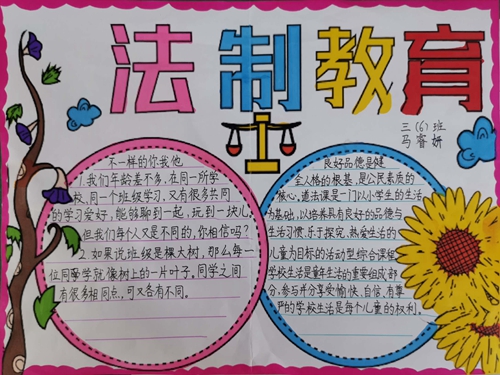 法制教育
三(6)班
马睿妍
不一样的你我他
1.我们年龄差不多,在同一所学
校,同一个班级学习,又有很多共同
的学习爱好,能够聊到一起,玩到一块儿,
但我们每个人又是不同的,你相信吗?
2.如果说班级是棵大树,那么每一
位同学就像树上的一片叶子,同学之间
有很多相同点,可又各有不同。
良好品德是健
全人格的根基,是公民素质的
核心,道法课是一门以小学生的生活
为基础,以培养具有良好的品德与
生活习惯,乐于探究,热爱生活的
儿童为目标的活动型综合课程
学校生活是童年生活的重要组成部
分,参与并分享受愉快、自信、有尊
严的学校生活是每个儿童的权利。